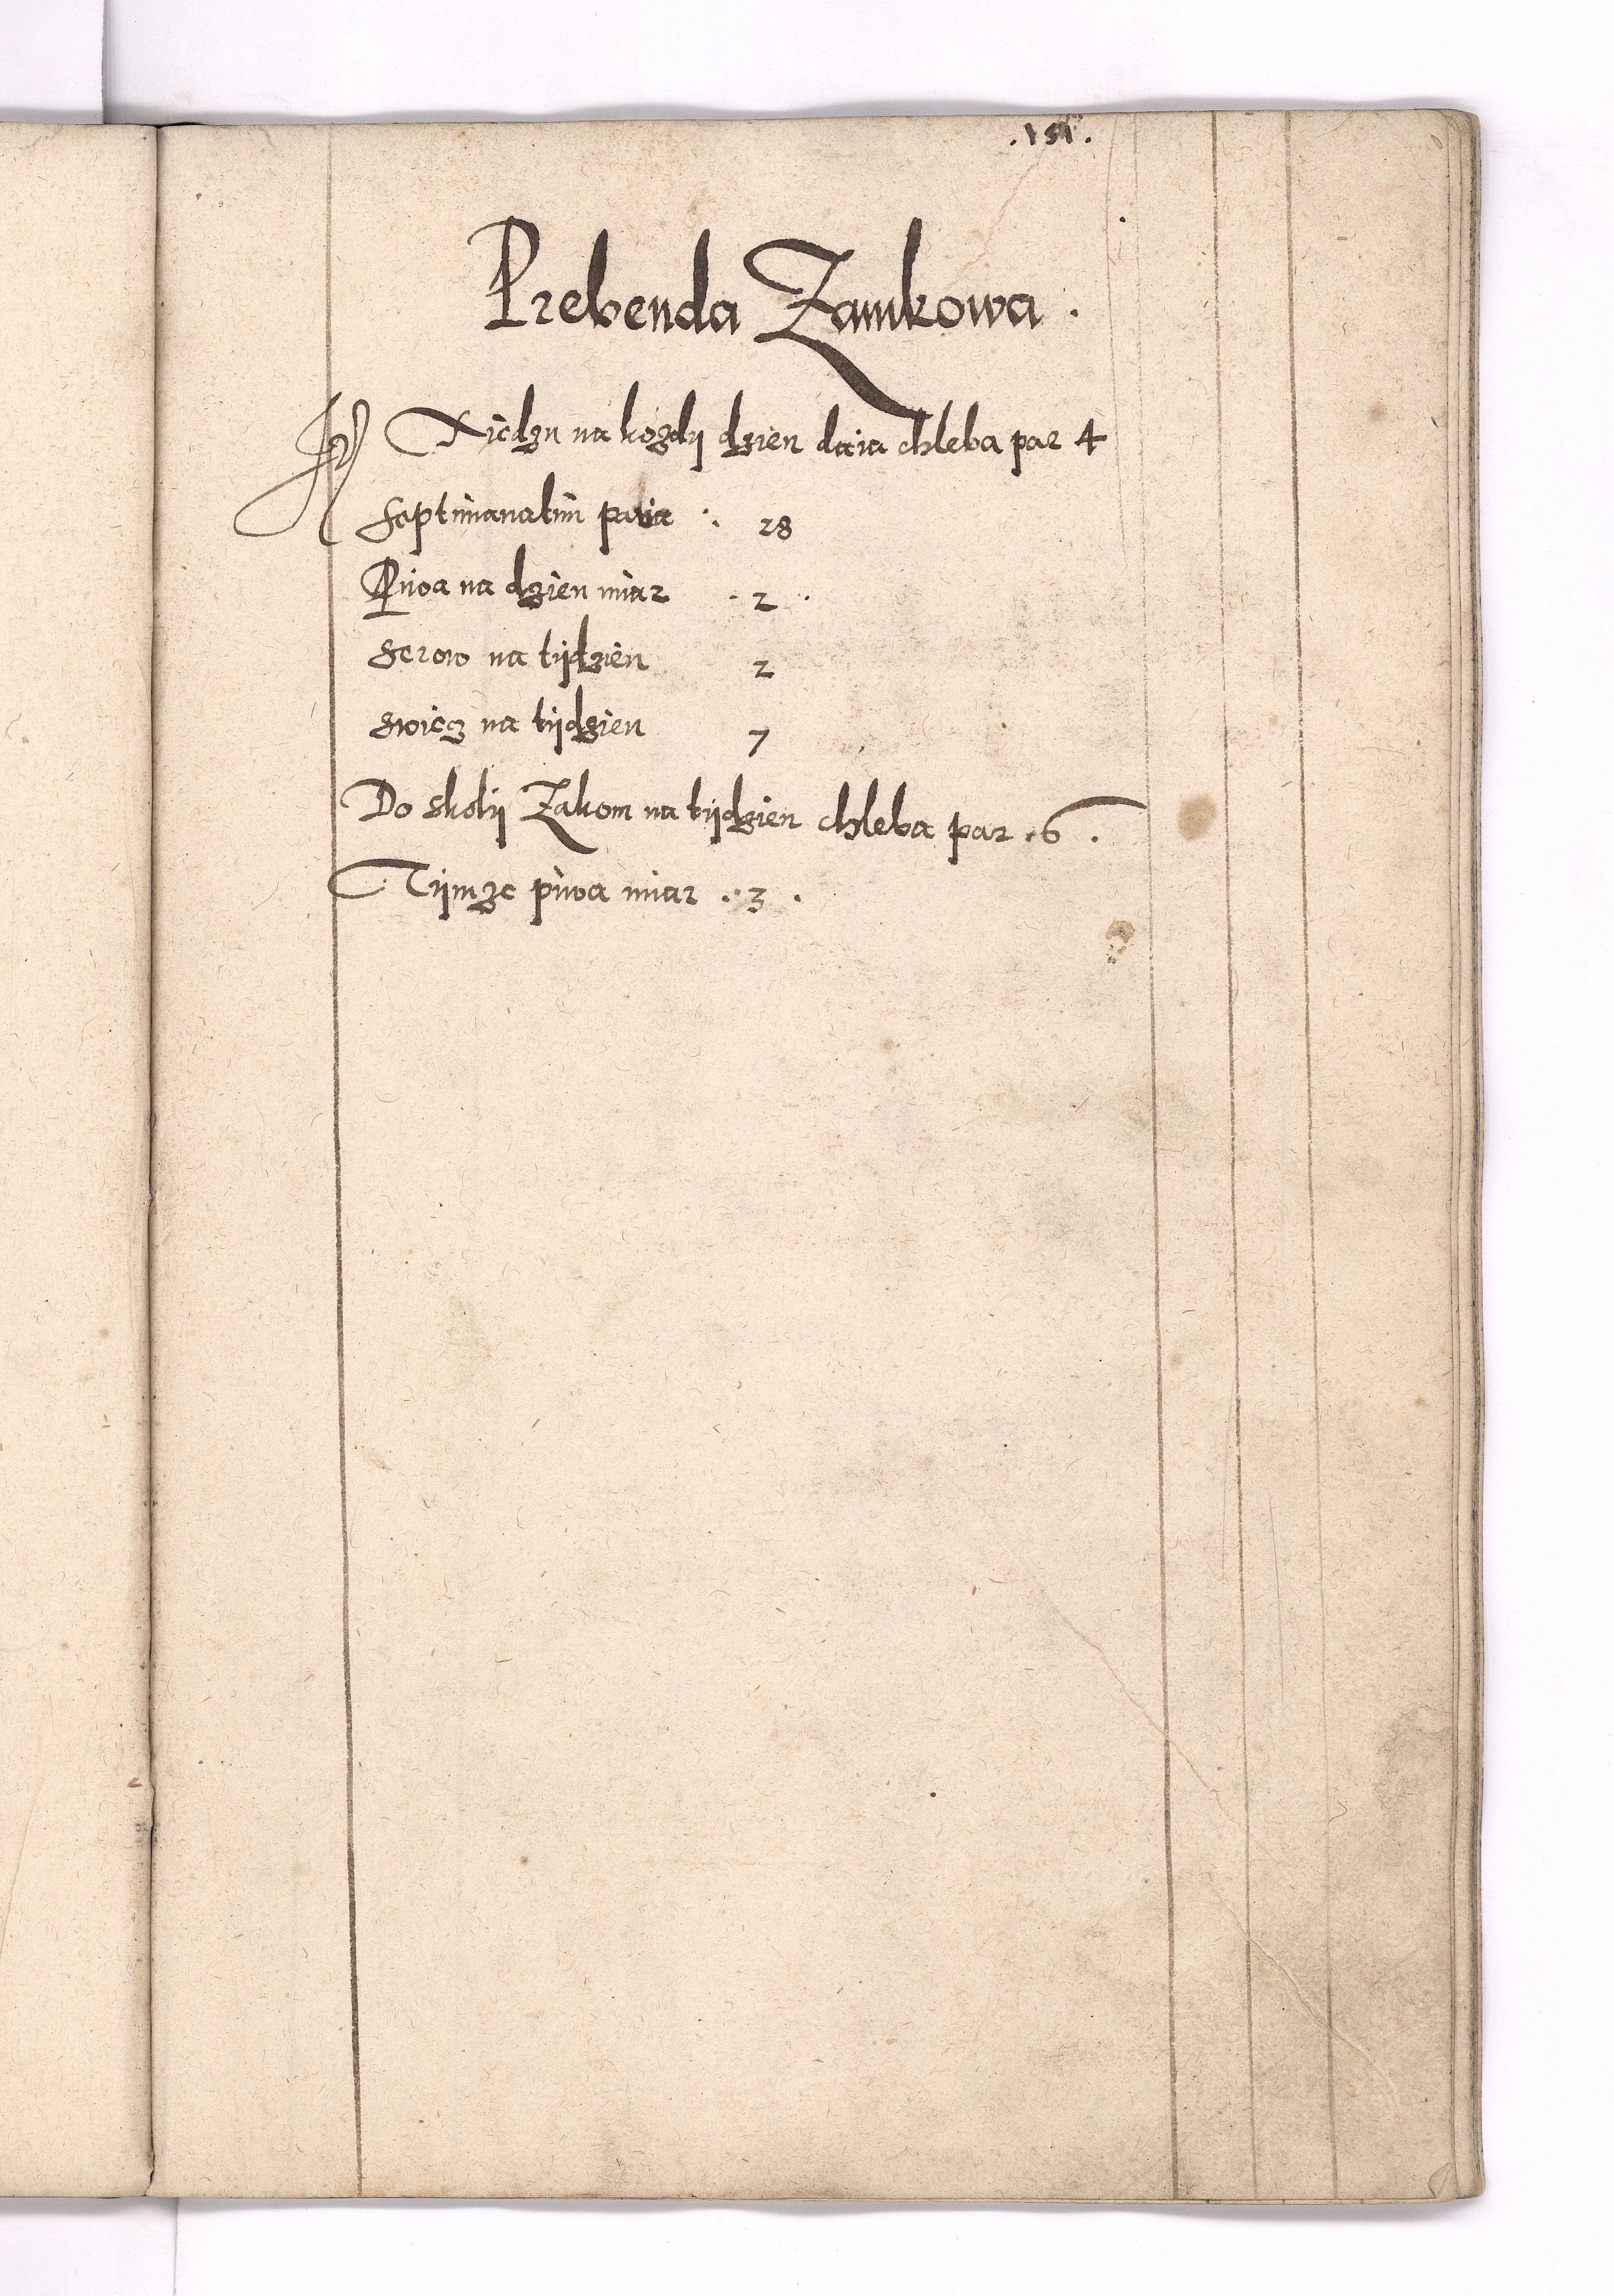 .151.
Prebenda Zamkowa .
Xiedzu na kozdÿ dzien daia chleba par 4
Septimanatim paria . 28
Piwa na dzien miar . 2 .
Serow na tÿdzien 2
Swiecz na tÿdzien 7
Do skolÿ Zakom na tÿdzien chleba par .6 .
Tÿmze piwa miar . 3 .